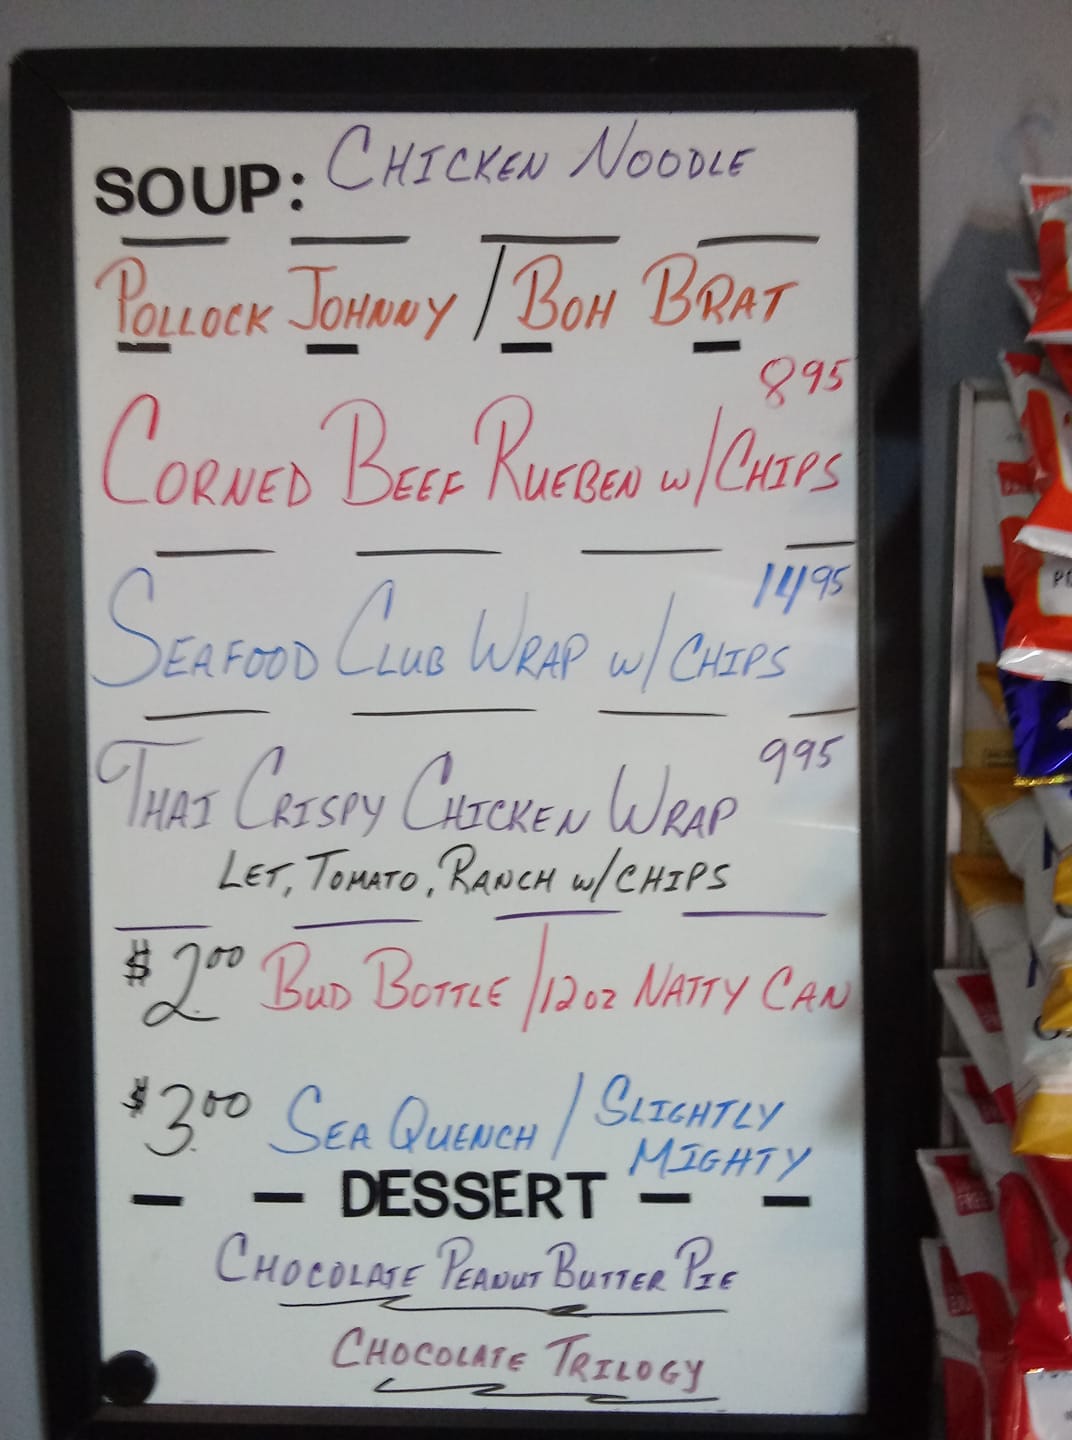 SOUP: CHICKEN NOODLE
POLLOCK JOHNNY / BOH BRAT
8 95
CORNED BEEF RUEBEN W/CHIPS
14 95
SEAFOOD CLUB WRAP W/ CHIPS
9 95
THAI CRISPY CHICKEN WRAP
LET, TOMATO, RANCH W/CHIPS
$2.00 BUD BOTTLE /12oz NATTY CAN
$3.00 SEA QUENCH / SLIGHTLY
MIGHTY
DESSERT
CHOCOLATE PEANUT BUTTER PIE
CHOCOLATE TRILOGY